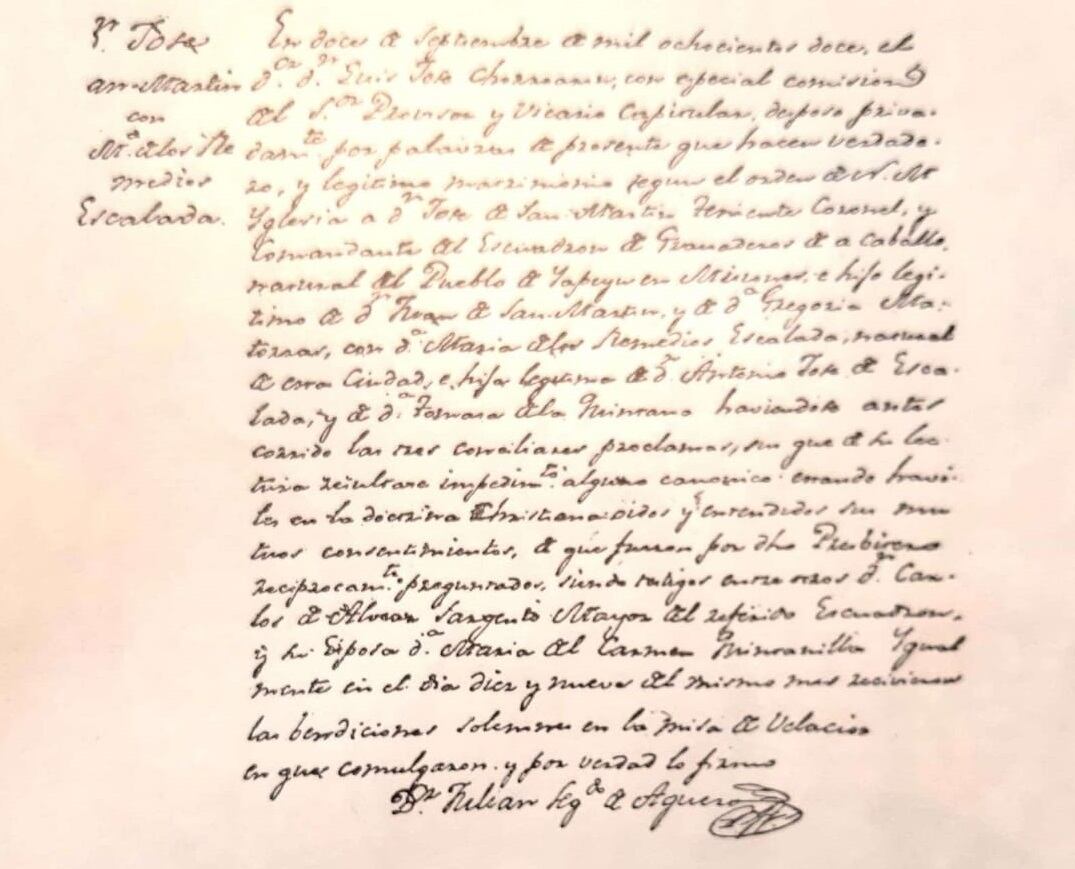 Dn Jose
San Martin
con
Mª. de los Re
medios
Escalada.
En doce de Septiembre de mil ochocientos doce, el
dor. dn. Luis Jose Chorroarin, con especial comision
del Sor. Provisor y Vicario Capitular, desposo priva-
damte. por palavras de presente que hacen verdade-
ro, y legitimo matrimonio segun el orden de N. M
Yglesia a dn. Jose de San Martin Teniente Coronel, y
Comandante del Escuadron de Granaderos de a caballo,
natural del Pueblo de Yapeyu en Misiones, e hijo legi-
timo de dn. Juan de San Martin, y de dª Gregoria Ma-
torras, con dª. Maria de los Remedios Escalada, natural
de esta Ciudad, e hija legitima de dn. Antonio Jose de Esca-
lada, y de dª. Tomasa de la Quintana haviendose antes
corrido las tres conciliares proclamas, sin que de su lec-
tura resultase impedimto. alguno canonico: estando havi-
les en la doctrina Christiana: oidos y entendidos sus mu
tuos consentimientos, de que fueron por dho Presbitero
reciprocamte. preguntados, siendo testigos entre otros dn. Car-
los de Alvear Sargento Mayor del referido Escuadron,
y su Esposa dª. Maria del Carmen Quintanilla Ygual
mente en el dia diez y nueve del mismo mes recivieron
las bendiciones solemnes en la misa de Velacion
en que comulgaron. y por verdad lo firmo
Dr. Julian Segdo de Aguero